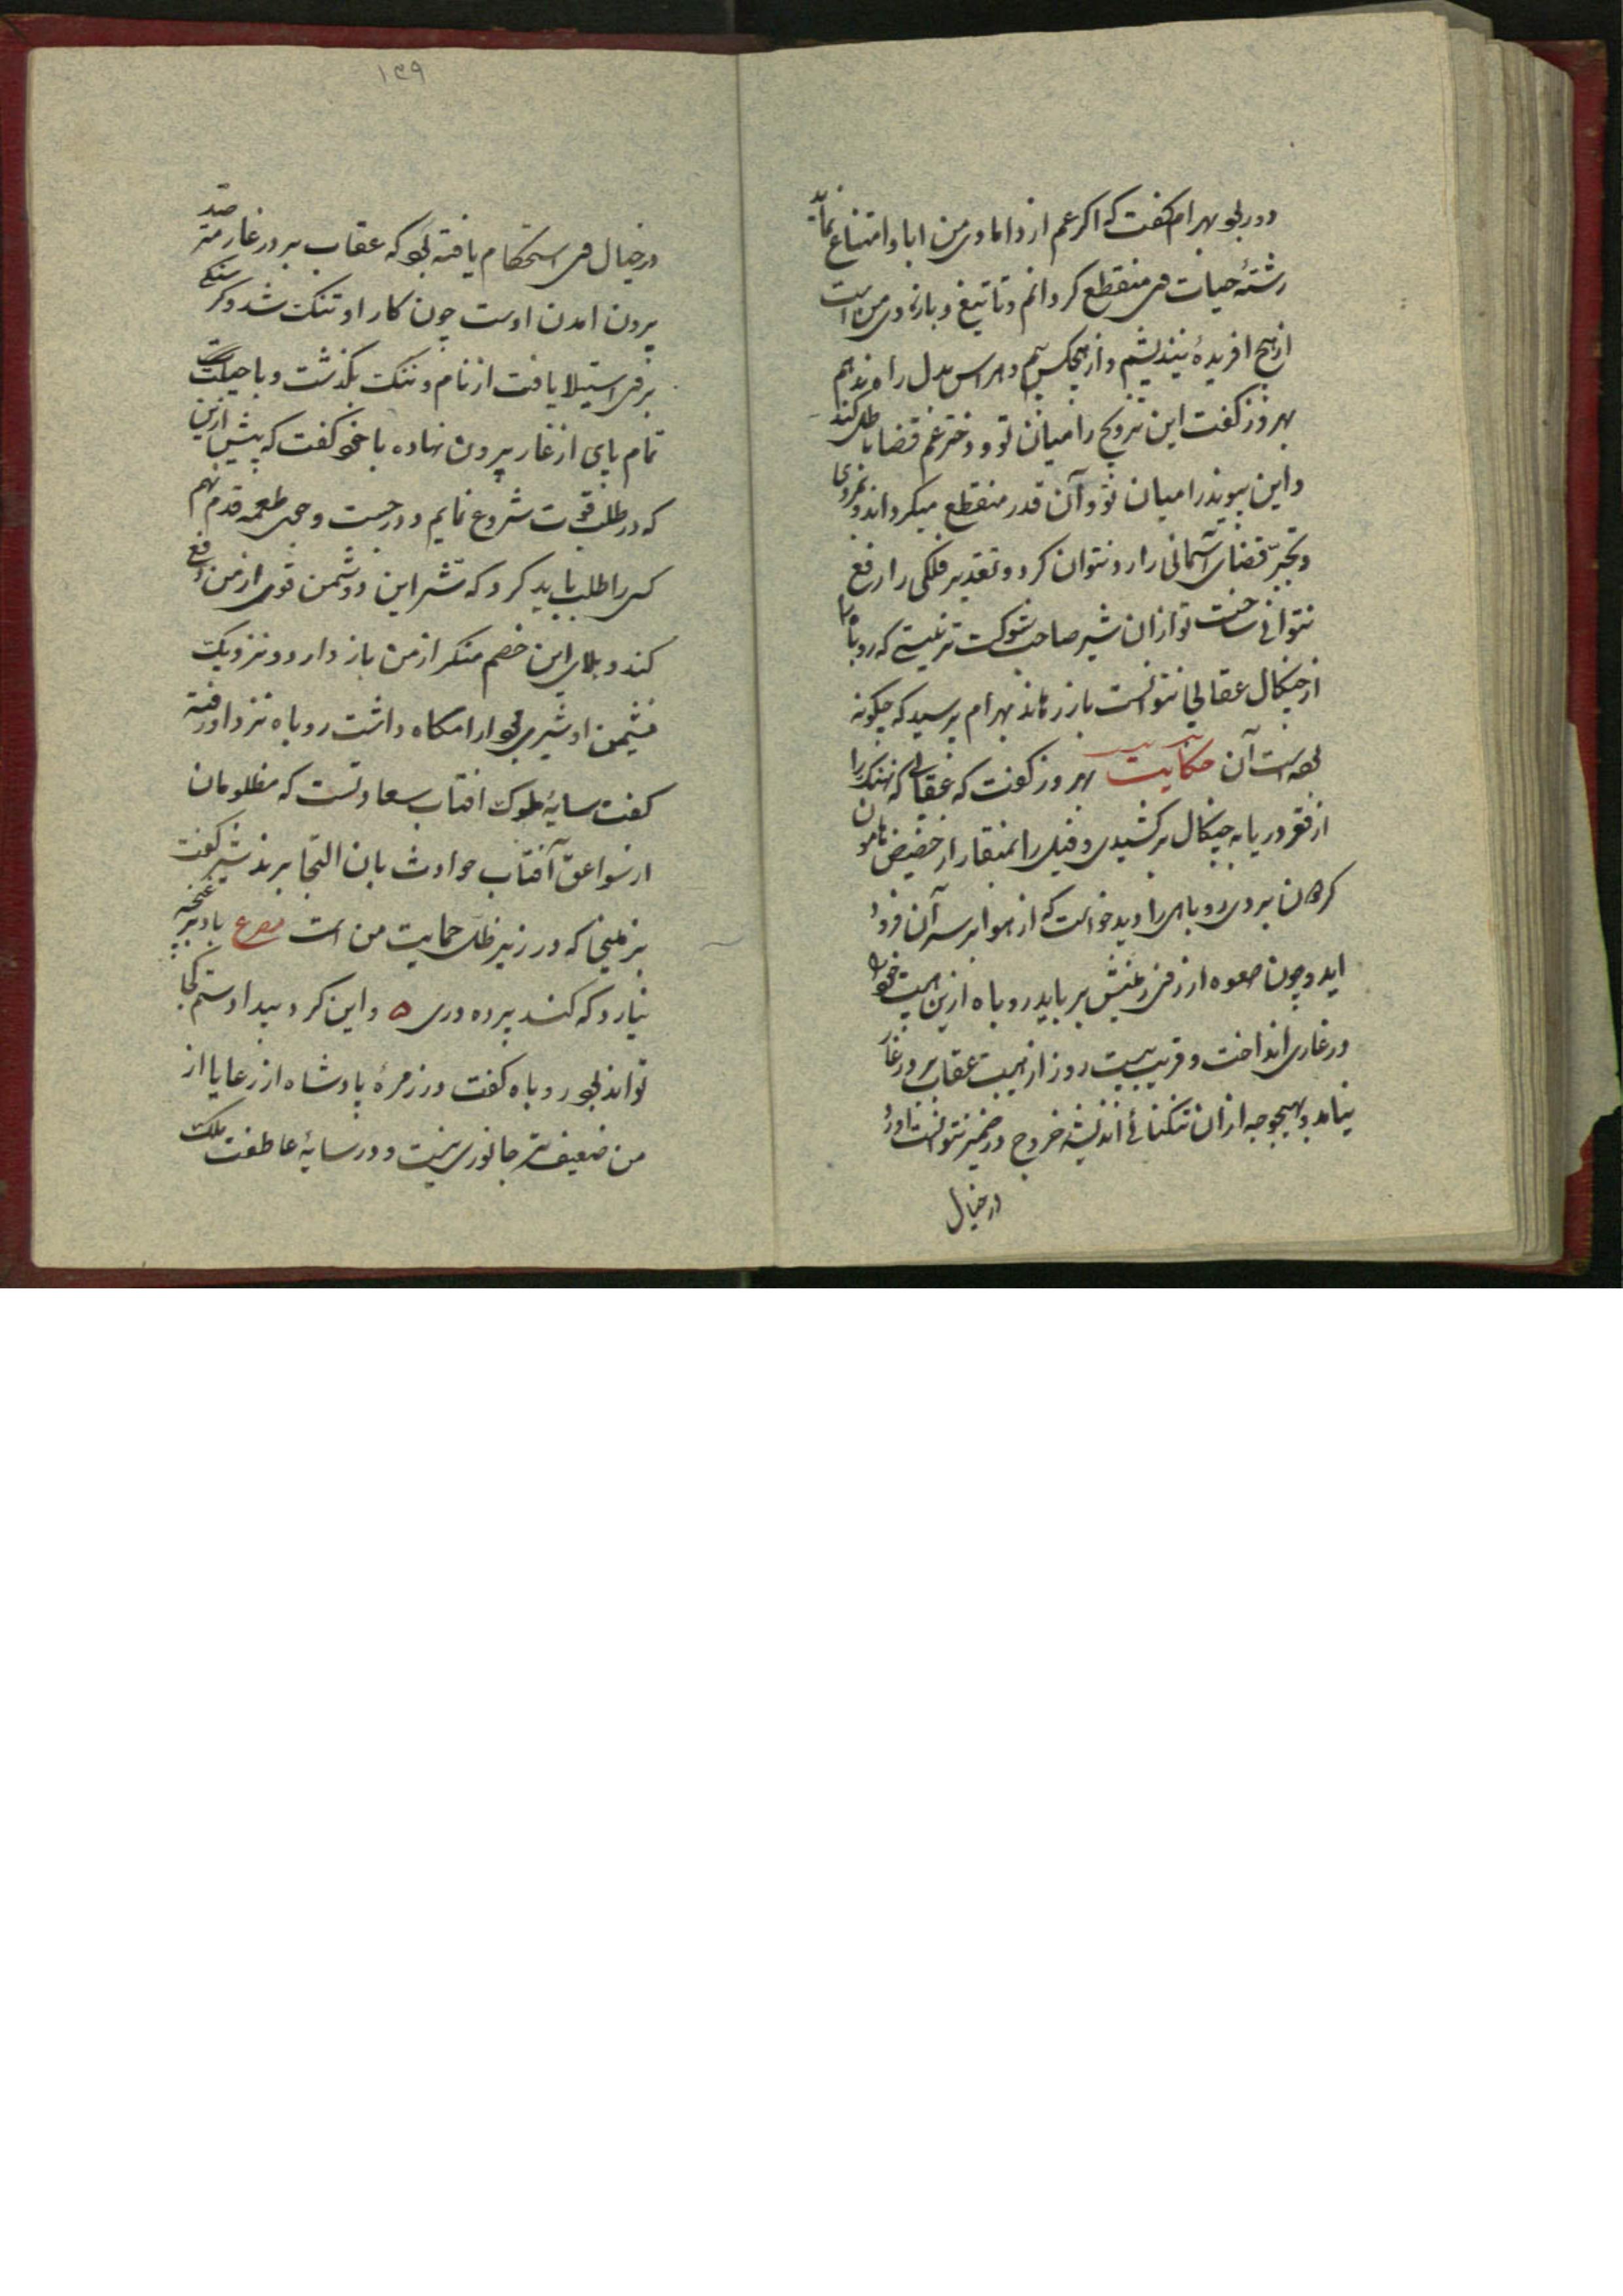 دور بود بهرام گفت که اگر عم از دامادی من ابا و امتناع نماید
رشتهٔ حیات وی منقطع کردانم و تا تیغ و بازوی من است
از هیچ افریدهٔ نیندیشم و از هیچکس بیم و هراس بدل راه ندهم
بهروز گفت این تزویج را میان تو و دختر عم قضا باطل کند
و این پیوند را میان تو و آن قدر منقطع میکرداند و بمردی
و تجبر قضای آسمانی را رد نتوان کرد و تقدیر فلکی را دفع
نتوانی ساخت تو ازان شیر صاحب شوکت تر نیستی که روباه را
از چنکال عقابی نتوانست باز رهاند بهرام پرسید که چکونه
بوده است آن حکایت بهروز گفت که عقابی که نهنک را
از قعر دریا به چنکال برکشیدی و فیل را بمنقار از حضیض هامون
کردون بردی روباهی را دید خواست که از هوا بر سر آن فرود
اید و چون صعوه از زمینش برباید روباه ازین هیبت خود را
در غاری انداخت و قریب بیست روز از هیبت عقاب بر در غار
نیامد و بهیچوجه ازان تنکنائی اندیشه خروج در ضمیر نتوانست اورد
در خیال
۱۳۹
در خیال وی استحکام یافته بود که عقاب بر در غار مترصد
بیرون امدن اوست چون کار او تنک شد و کرسنکی
بر وی استیلا یافت از نام و ننک بگذشت و با حیلت
تمام پای از غار بیرون نهاده با خود گفت که پیش ازین
که در طلب قوت شروع نمایم و در جست و جوی طعمه قدم نهم
کسی را طلب باید کرد که شر این دشمن قوی از من دفع
کند و بلای این خصم منکر از من باز دارد و نزدیک
نشیمن او شیری بود ارامکاه داشت روباه نزد او رفته
گفت سایهٔ ملوک افتاب سعادتست که مظلومان
از سواعق آفتاب حوادث بان التجا برند شیر گفت
بزمینی که در زیر ظل حمایت من است مصرع باد بر غنچه
نیارد که کند پرده دری ه و این کرد بیداد و ستم کجا
تواند بود روباه گفت در زمرهٔ پادشاه از رعایا از
من ضعیف تر جانوری نیست و در سایهٔ عاطفت ملک